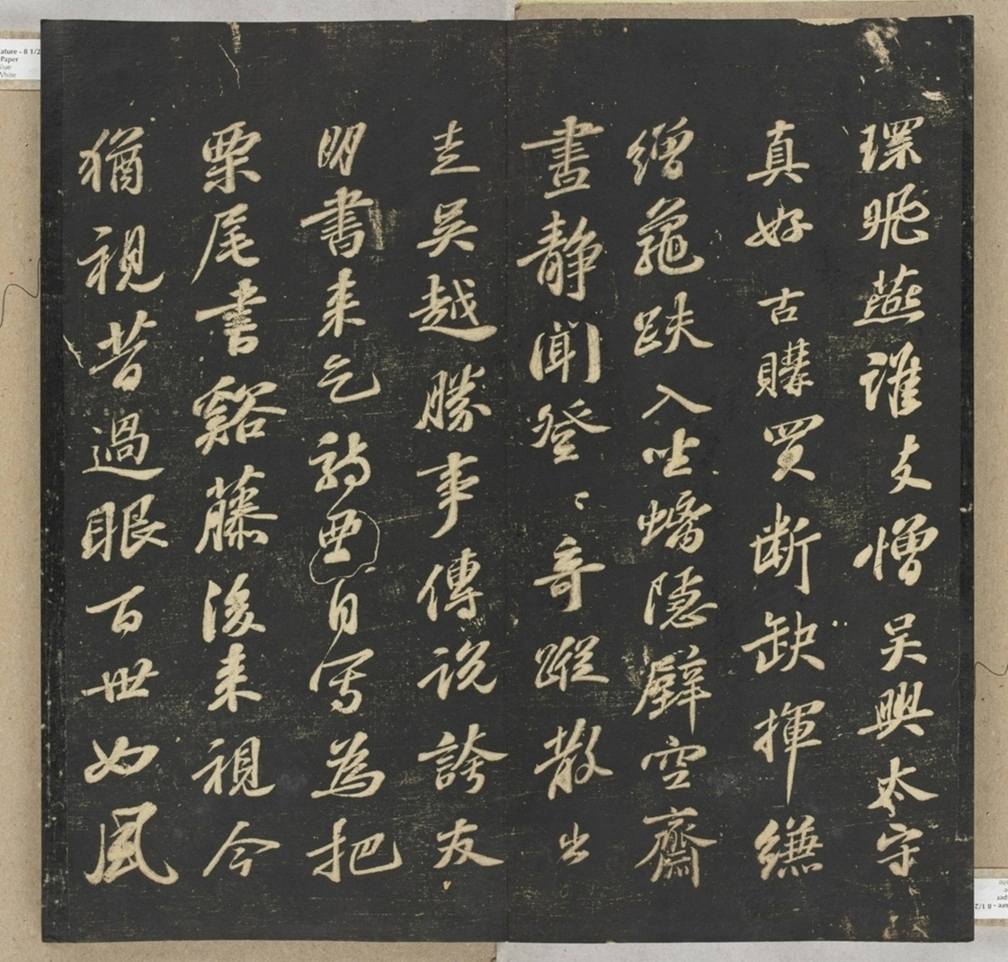 環飛燕誰憎吳興太守
真好古購買断缺揮縑
繒龜趺入坐螭隱壁空齋
晝靜聞登〻奇蹤散出
走吳越勝事傳說誇友
朋書来乞詩要自寫為把
栗尾書谿藤後来視今
猶視昔過眼百世如風
ature - 8 1/2
Paper
White